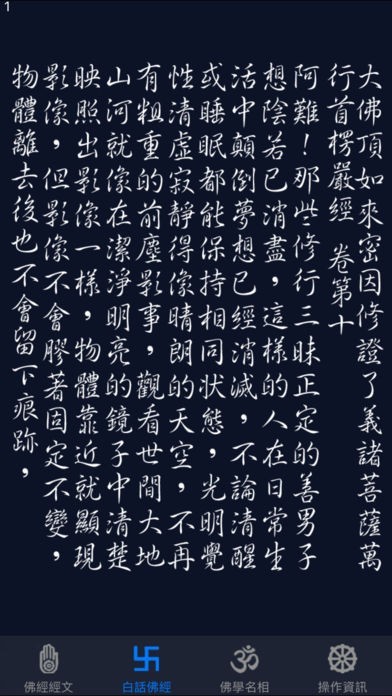 1
大佛頂如來密因修證了義諸菩薩萬
行首楞嚴經 卷第十
阿難！那些修行三昧正定的善男子
想陰若已消盡，這樣的人在日常生
活中顛倒夢想已經消滅，不論清醒
或睡眠都能保持相同狀態，光明覺
性清虛寂靜得像晴朗的天空，不再
有粗重的前塵影事，觀看世間大地
山河就像在潔淨明亮的鏡子中清楚
映照出影像一樣，物體靠近就顯現
影像，但影像不會膠著固定不變，
物體離去後也不會留下痕跡，
佛經經文
白話佛經
佛學名相
操作資訊